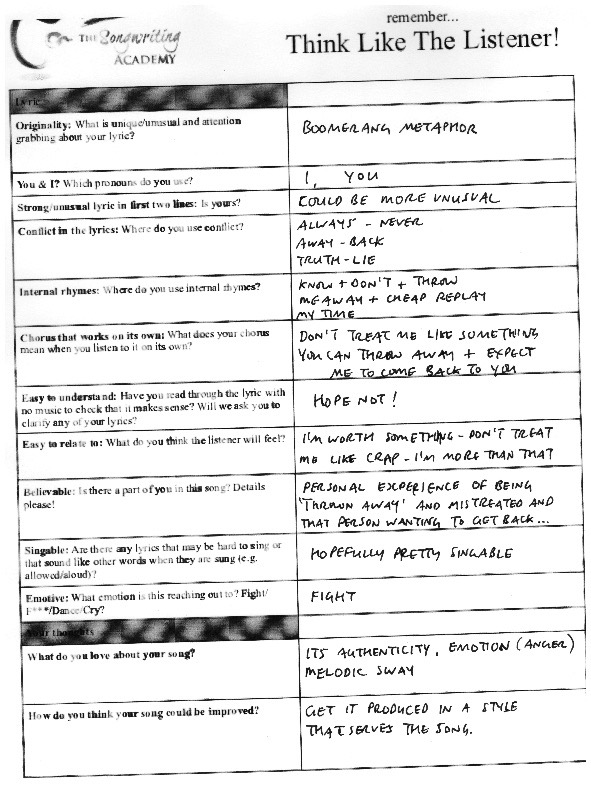 remember...
THE Songwriting
ACADEMY
Think Like The Listener!
Lyric
Originality: What is unique/unusual and attention
grabbing about your lyric?
BOOMERANG METAPHOR
You & I? Which pronouns do you use?
I, YOU
Strong/unusual lyric in first two lines: Is yours?
COULD BE MORE UNUSUAL
Conflict in the lyrics: Where do you use conflict?
ALWAYS - NEVER
AWAY - BACK
TRUTH - LIE
Internal rhymes: Where do you use internal rhymes?
KNOW + DON'T + THROW
ME AWAY + CHEAP REPLAY
MY TIME
Chorus that works on its own: What does your chorus
mean when you listen to it on its own?
DON'T TREAT ME LIKE SOMETHING
YOU CAN THROW AWAY + EXPECT
ME TO COME BACK TO YOU
Easy to understand: Have you read through the lyric with
no music to check that it makes sense? Will we ask you to
clarify any of your lyrics?
HOPE NOT!
Easy to relate to: What do you think the listener will feel?
I'M WORTH SOMETHING - DON'T TREAT
ME LIKE CRAP - I'M MORE THAN THAT
Believable: Is there a part of you in this song? Details
please!
PERSONAL EXPERIENCE OF BEING
'THROWN AWAY' AND MISTREATED AND
THAT PERSON WANTING TO GET BACK...
Singable: Are there any lyrics that may be hard to sing or
that sound like other words when they are sung (e.g.
allowed/aloud)?
HOPEFULLY PRETTY SINGABLE
Emotive: What emotion is this reaching out to? Fight/
F***/Dance/Cry?
FIGHT
Your thoughts
What do you love about your song?
ITS AUTHENTICITY, EMOTION (ANGER)
MELODIC SWAY
How do you think your song could be improved?
GET IT PRODUCED IN A STYLE
THAT SERVES THE SONG.